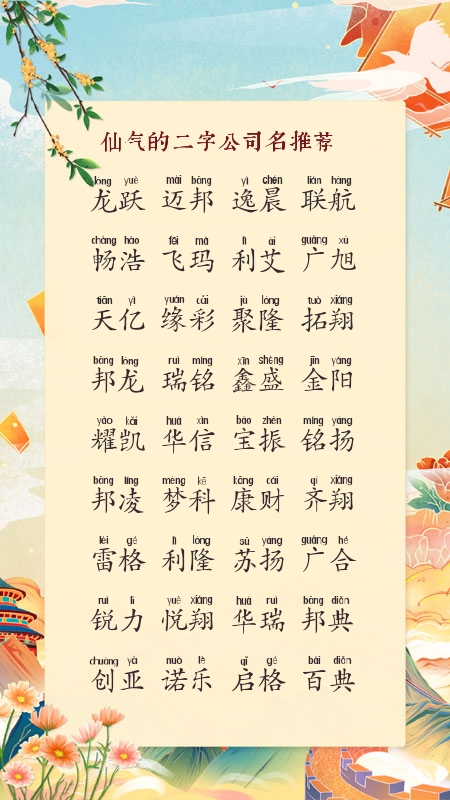 仙气的二字公司名推荐
lóng yuè mài bāng yì chén lián háng
龙跃 迈邦 逸晨 联航
chàng hào fēi mǎ lì ài guǎng xù
畅浩 飞玛 利艾 广旭
tiān yì yuán cǎi jù lóng tuò xiáng
天亿 缘彩 聚隆 拓翔
bāng lóng ruì míng xīn shèng jīn yáng
邦龙 瑞铭 鑫盛 金阳
yào kǎi huá xìn bǎo zhèn míng yáng
耀凯 华信 宝振 铭扬
bāng líng mèng kē kāng cái qí xiáng
邦凌 梦科 康财 齐翔
léi gé lì lóng sū yáng guǎng hé
雷格 利隆 苏扬 广合
ruì lì yuè xiáng huá ruì bāng diǎn
锐力 悦翔 华瑞 邦典
chuàng yà nuò lè qǐ gé bǎi diǎn
创亚 诺乐 启格 百典